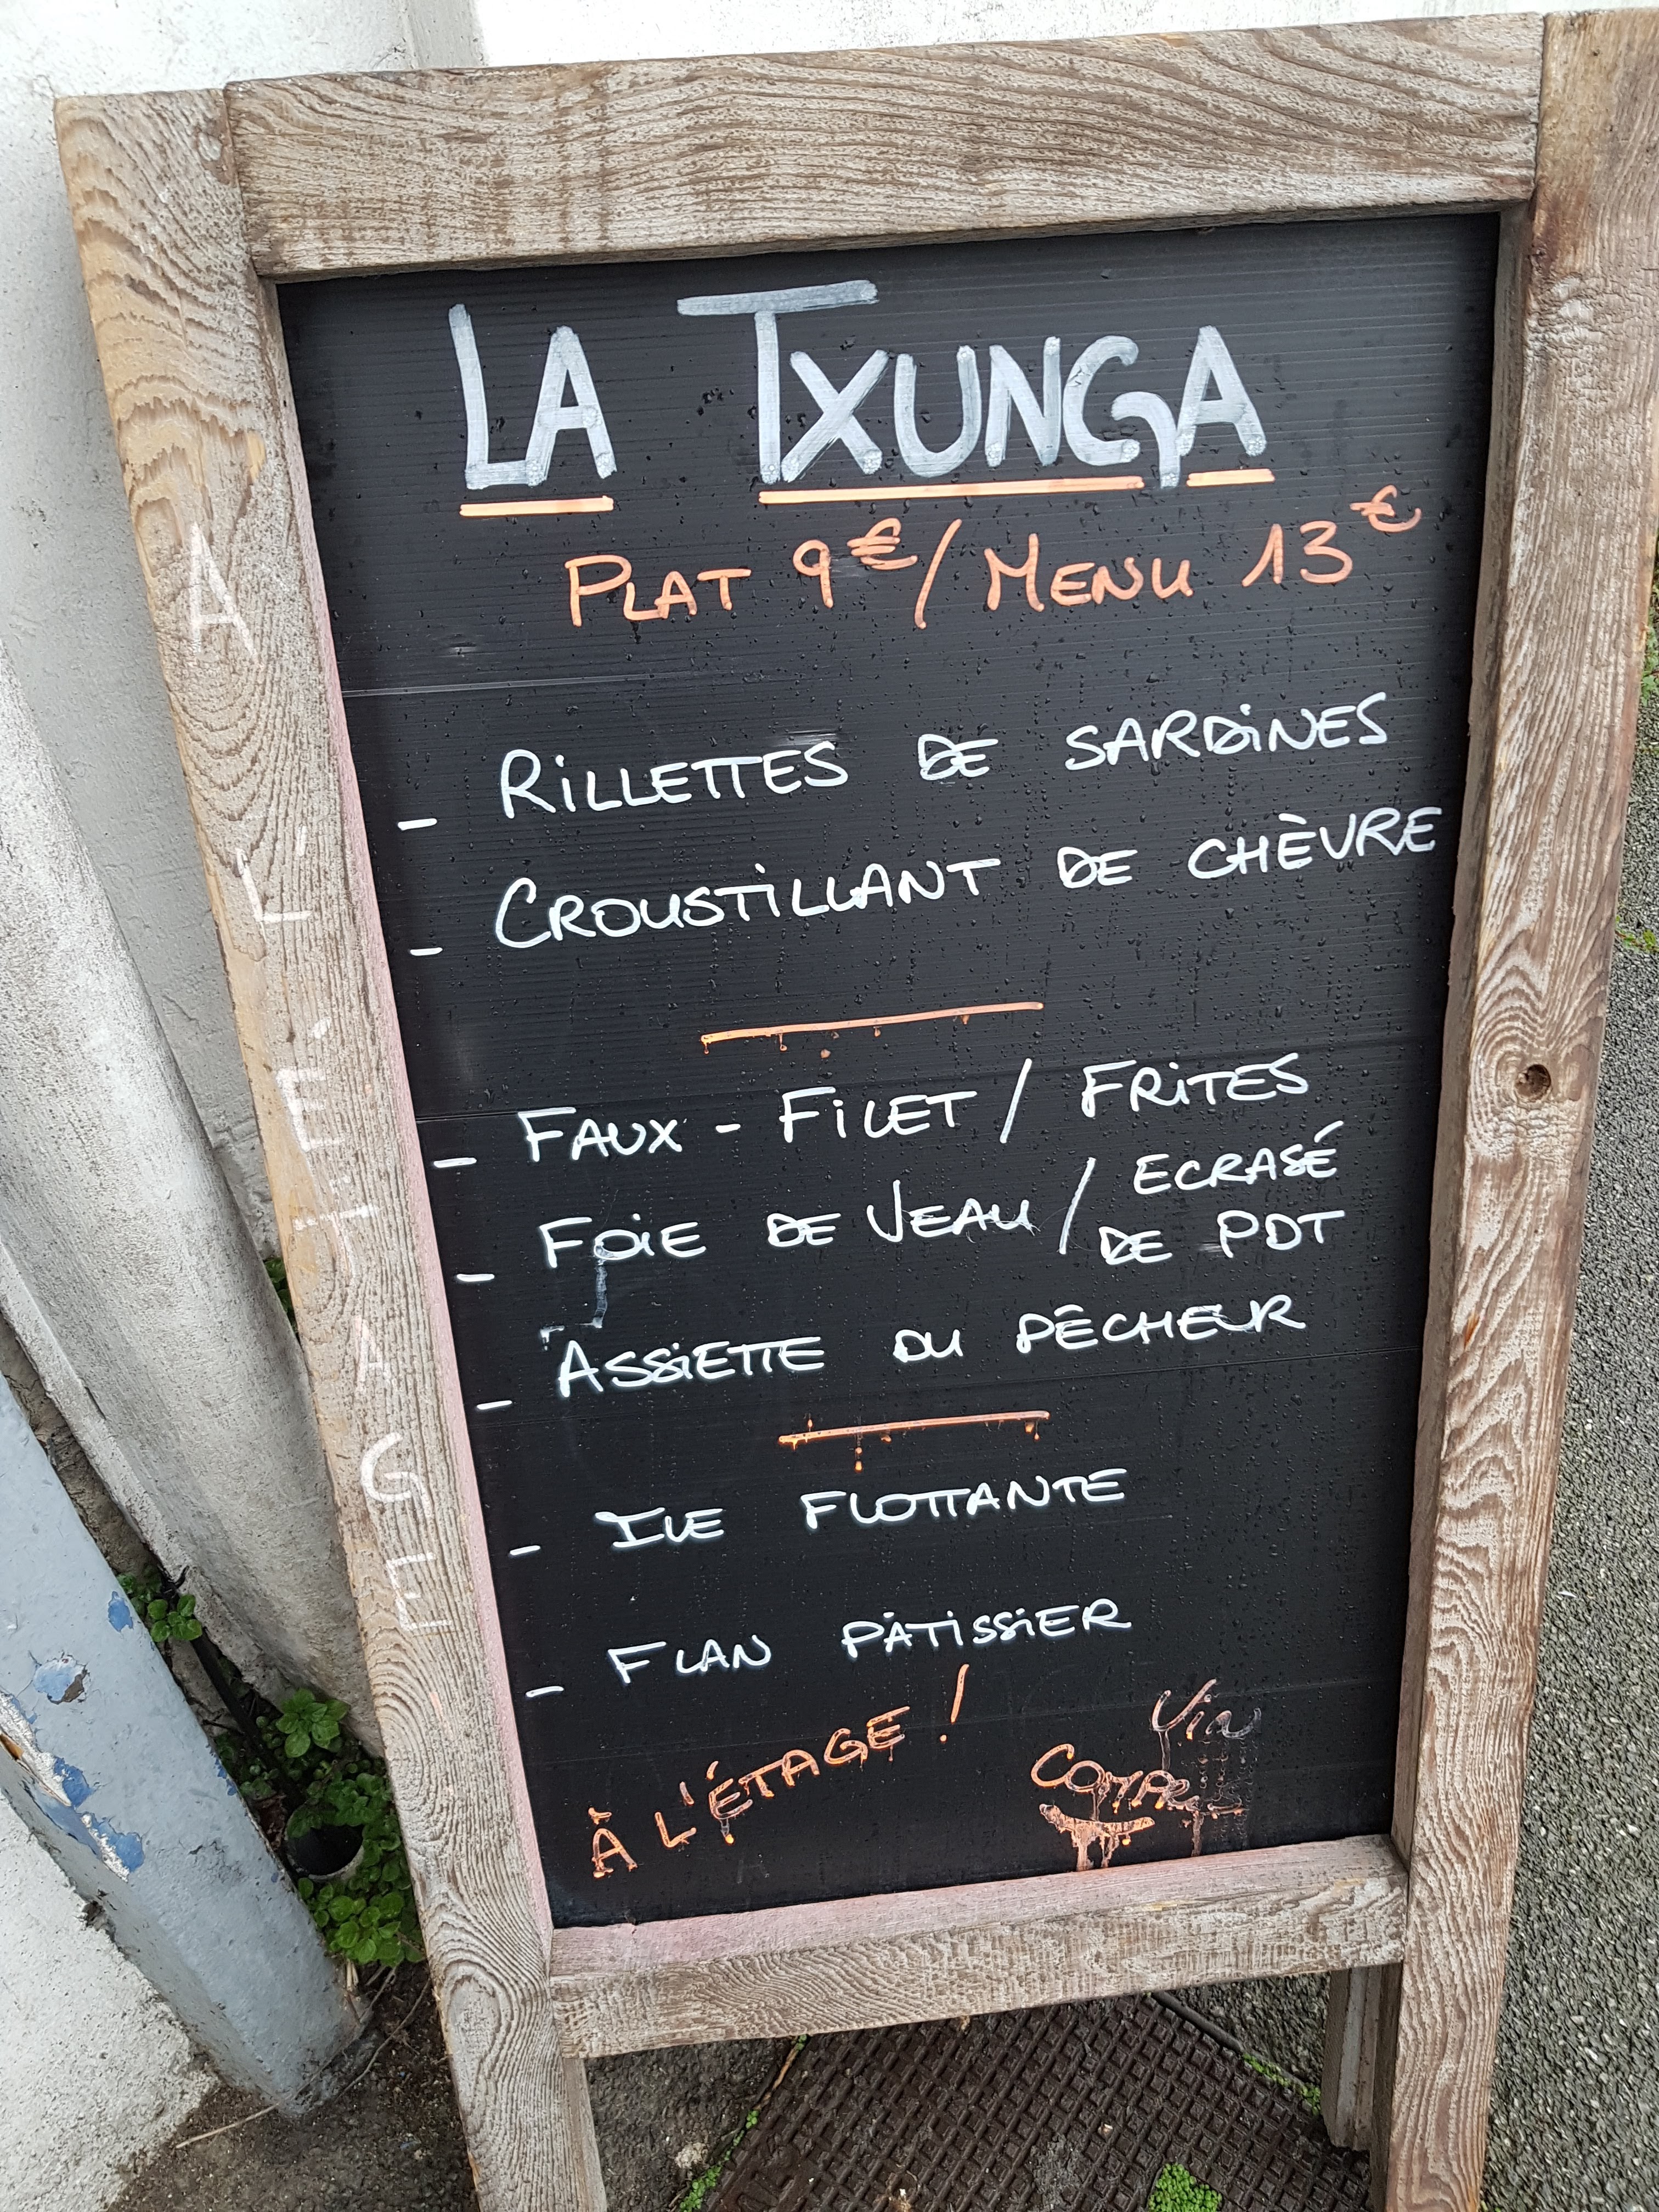 LA TXUNGA
PLAT 9€ / MENU 13€
- RILLETTES DE SARDINES
- CROUSTILLANT DE CHÈVRE
- FAUX - FILET / FRITES
- FOIE DE VEAU / ECRASÉ
DE PDT
- ASSIETTE DU PÊCHEUR
- ILE FLOTTANTE
- FLAN PÂTISSIER
À L'ÉTAGE !
Vin
A L'ÉTAGE